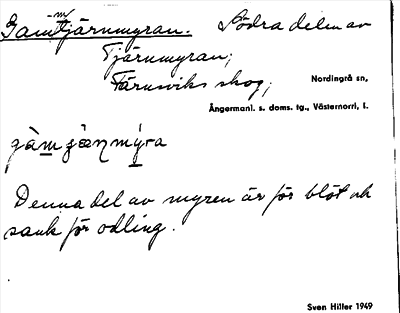 Gammtjärnmyran. Södra delen av
Tjärnmyran;
Färnviks skog; Nordingrå sn,
Ångermanl. s. doms. tg., Västernorrl. l.
Denna del av myren är för blöt och
sank för odling.
Sven Hiller 1949